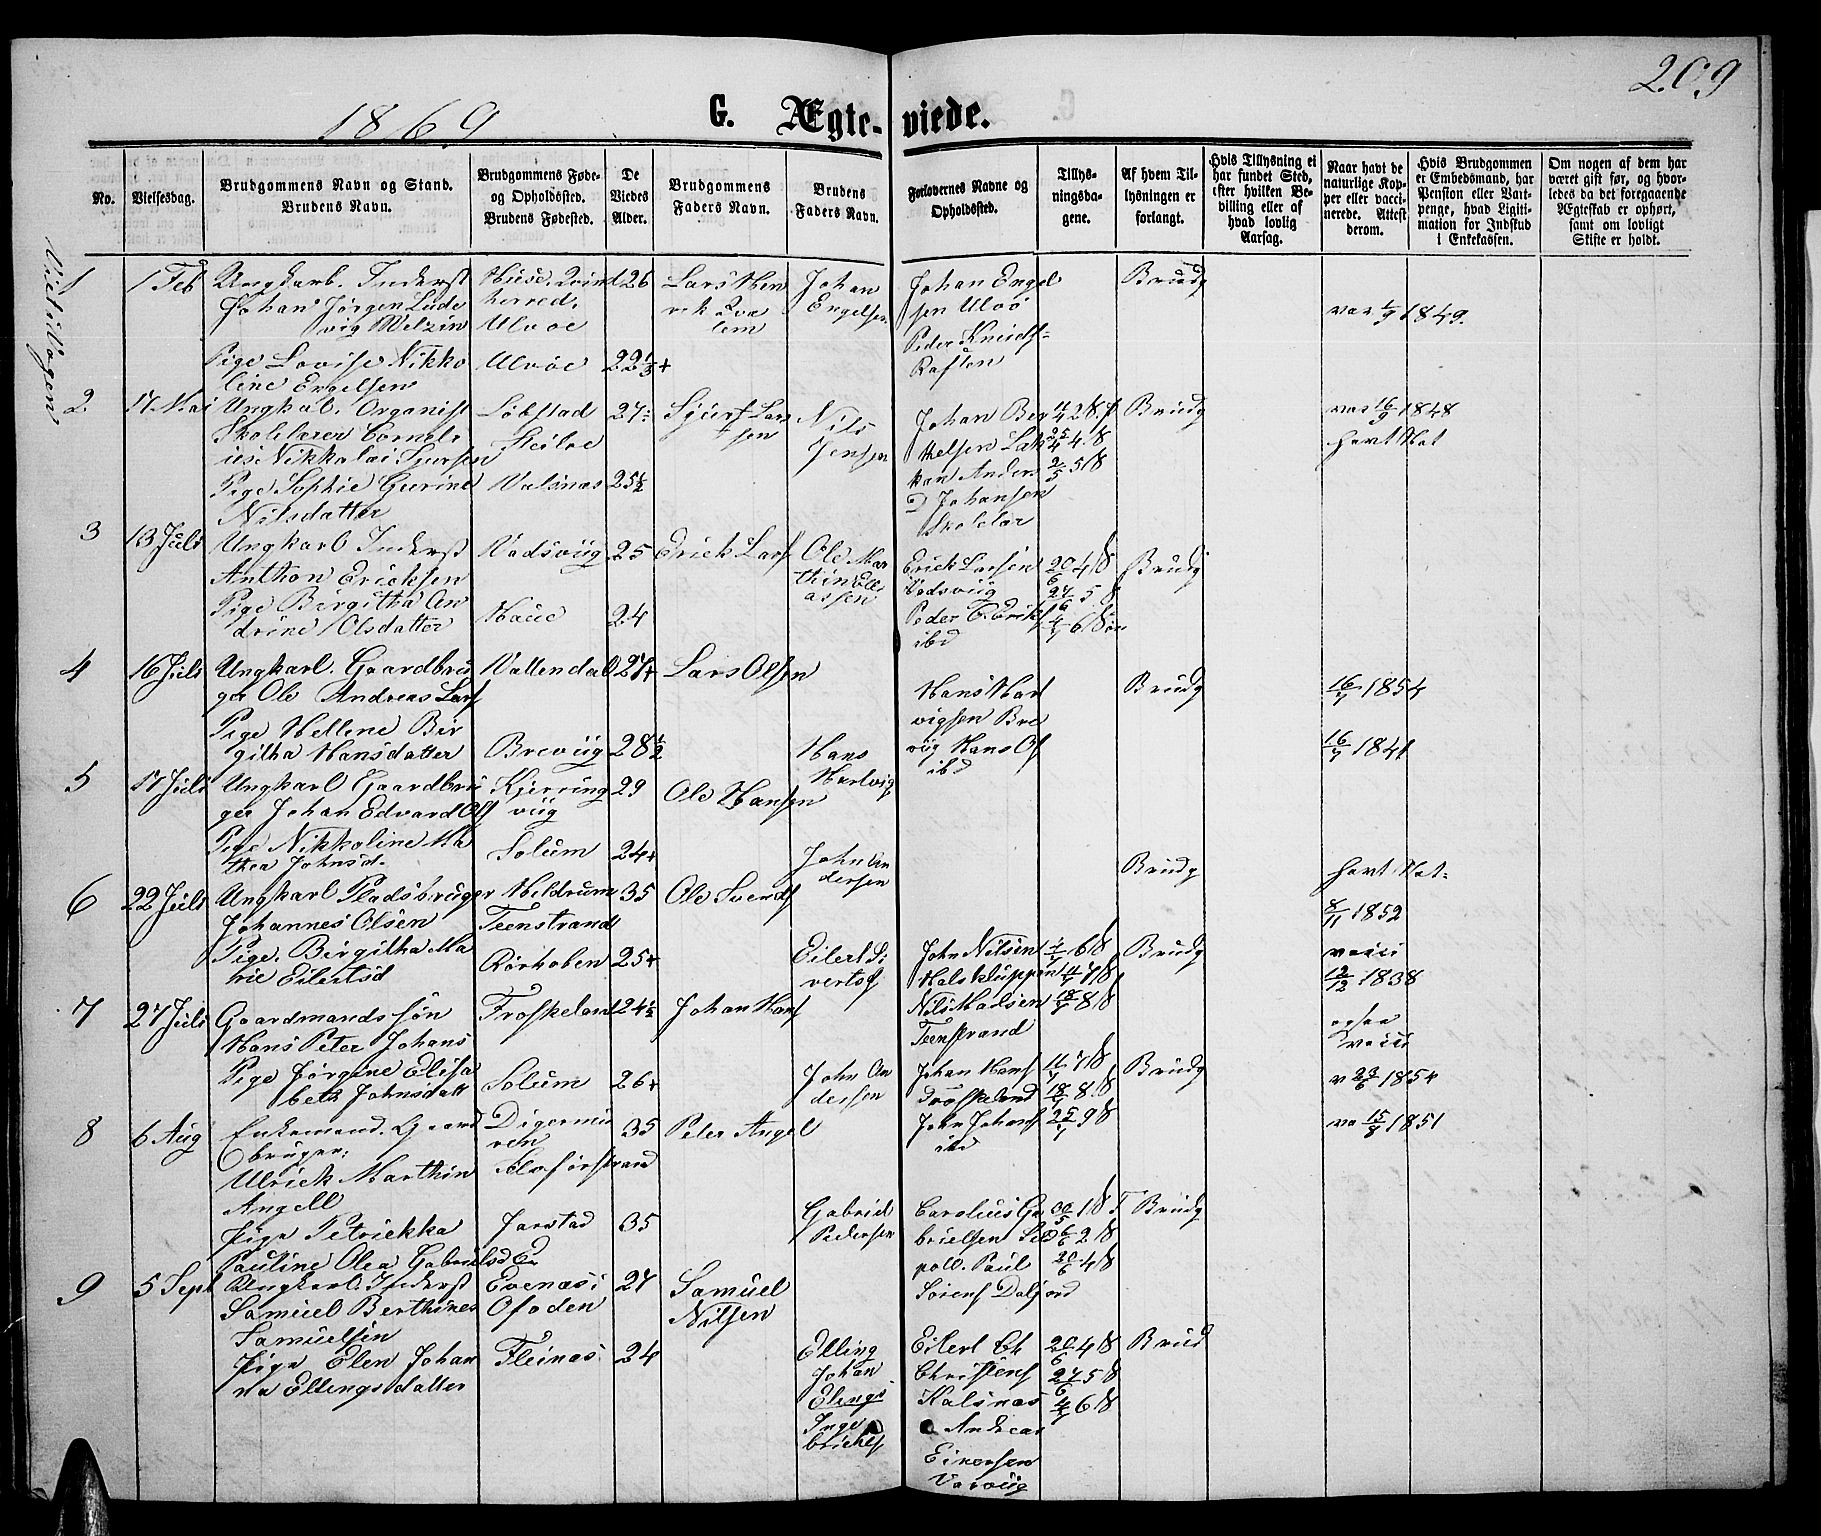 209
1869
G. Ægte-viede.
No.
Vielsesdag.
Brudgommens Navn og Stand.
Brudens Navn.
Brudgommens Føde-
og Opholdssted.
Brudens Fødested.
De
Viedes
Alder.
Brudgommens
Faders Navn.
Brudens
Faders Navn.
Forlovernes Navne og
Opholdssted.
Tillys-
ningsda-
gene.
Af hvem Til-
lysningen er
forlangt.
Hvis Tillysning ei
har fundet Sted,
efter hvilken Be-
villing eller af
hvad lovlig
Aarsag.
Naar havt de
naturlige Kop-
per eller vacci-
nerede. Attest
derom.
Hvis Brudgommen
er Embedsmand, har
Pension eller Vart-
penge, hvad Legiti-
mation for Indskud
i Enkekassen.
Om nogen af dem har
været gift før, og hvor-
ledes da det foregaaende
Ægteskab er ophørt,
samt om lovligt
Skifte er holdt.
1
1 Feb
Ungkarl. Inderst
Johan Jørgen Lude
vig Welzin
26
Lars Hen
Johan
Engelsen
Johan Engel
sen Ulvö
Peder Knuds-
Raften
Brudg
vac 1/9 1849.
herred.
Ulvöe
Pige Lovise Nikko
line Engelsen
Ulvöe
22 1/3
2.
17 Mai
Ungkal. Organist
Skolelærer Corneli
us Nikkolai Sjursen
27
Sjur Lar
sen
Nils
Jensen
Brudg
vac 16/9 1848
havt Nat
Pige Sophie Gurine
Nilsdatter
Valsnæs
25 1/2
Johansen
Skolelær
3
13 Juli
Ungkarl Inderst
Anthon Ericksen
Vodsviig
25
Erick Lars
Ole Mar
thin Eli
assen
Erick Larsen
Vodsviig
20/6 4 S
27/6 5 S
4/7 6 S
Brudg
Pige Birgitha An
drine Olsdatter
24
Peder
ibd
4
16 Juli
Ungkarl. Gaardbru
ger Ole Andreas Lars
Vattendal
27
Lars Olsen
Hans Hart
vigsen Bre
viig Hans Ol
ibd
Brudg
16/7 1854
Pige Hellene Bir
githa Hansdatter
Breviig
28 1/2
Hans
Hartvig
16/7 1841
5
17 Juli
Ungkarl Gaardbru
ger Johan Edvard Ols
Kjerring
viig
29
Ole Hansen
Pige Nikkoline Ma
thea Johnsd.
Solum
24
John An
dersen
Brudg
havt Nat-
6
22 Juli
Ungkarl Pladsbruger
Johannes Olsen
Meldrum
Teenstrand
35
Ole Svends
8/11 1852
Pige. Birgitha Ma
rie Eilertsd
25
Eilert Si
vertsf
John Nilsen
Nils Madsen
Teenstrand
4/7 6 S
11/7 7 S
18/7 8 S
Brudg
12/12 1838
7
27 Juli
Gaardmandssön
Hans Peter Johans
Froskeland
24 1/2
Johan Hans
Pige Jörgine Elisa
beth Johnsdatt
Solum
26
John An
dersen
Johan Hans
Froskeland
John Johans
ibd
11/7 7 S
18/7 8 S
25/7 9 S
Brudg
v 23/6 1854
va 15/8 1851
8
6 Aug
Enkemand. Gaard
bruger.
Ulrick Marthin
Angell
Digermu
len
35
Peter Angel
Pige Petrickka
Pauline Olea Gabrielsd
Jarstad
35
Gabriel
Pedersen
Carolius Ga
brielsen Sild
poll. Paul
Sörens Dalfjord
30/5 1 S
6/6 2 S
20/6 4 S
Brudg
9
5 Sept
Ungkarl. Inderst
Samuel Berthines
Samuelsen
Evenæs i
Ofoden
27
Samuel
Nilsen
Pige Elen Johan
na Ellingsdatter
Fleinæs
24
Elling
Johan
Elings
Inge
brichs
Eilert Ch
Christens
Kalsnæs
Andreas
Einersen
20/6 4 S
27/6 5 S
4/7 6 S
Brud